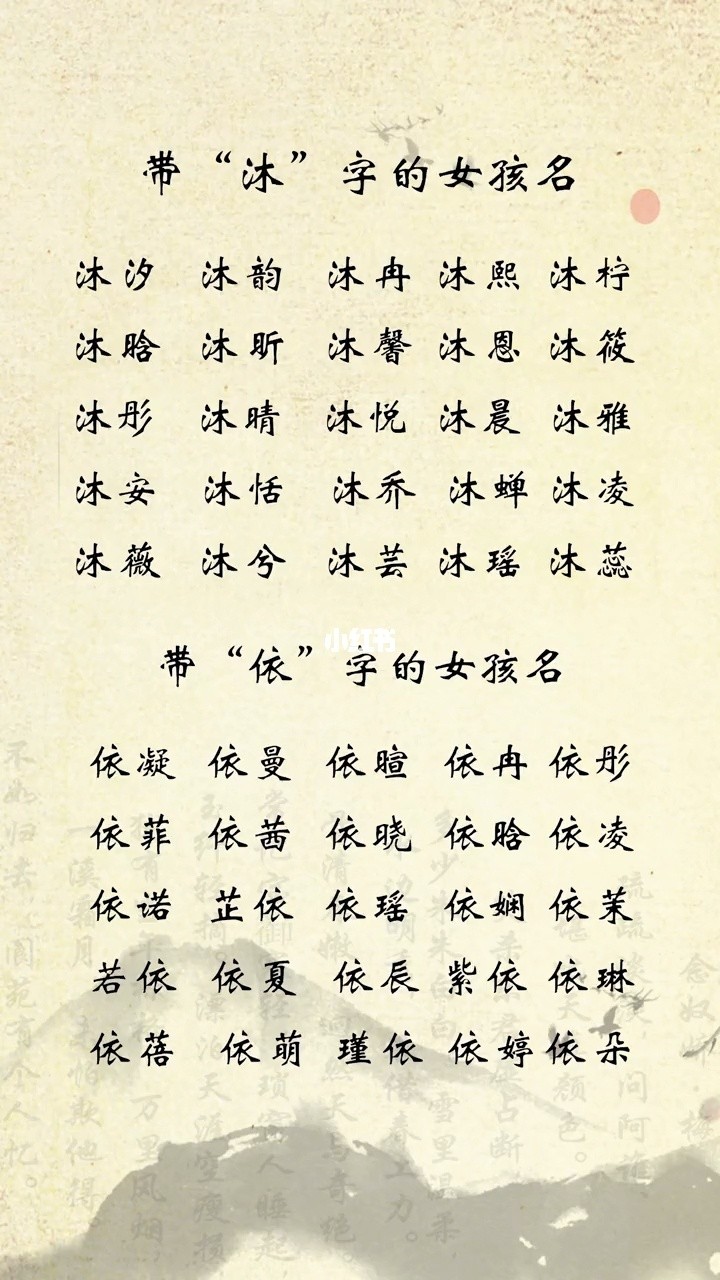 带“沐”字的女孩名
沐汐 沐韵 沐冉 沐熙 沐柠
沐晗 沐昕 沐馨 沐恩 沐筱
沐彤 沐晴 沐悦 沐晨 沐雅
沐安 沐恬 沐乔 沐蝉 沐凌
沐薇 沐兮 沐芸 沐瑶 沐蕊
小红书
带“依”字的女孩名
依凝 依曼 依暄 依冉 依彤
依菲 依茜 依晓 依晗 依凌
依诺 芷依 依瑶 依娴 依茉
若依 依夏 依辰 紫依 依琳
依蓓 依萌 瑾依 依婷 依朵